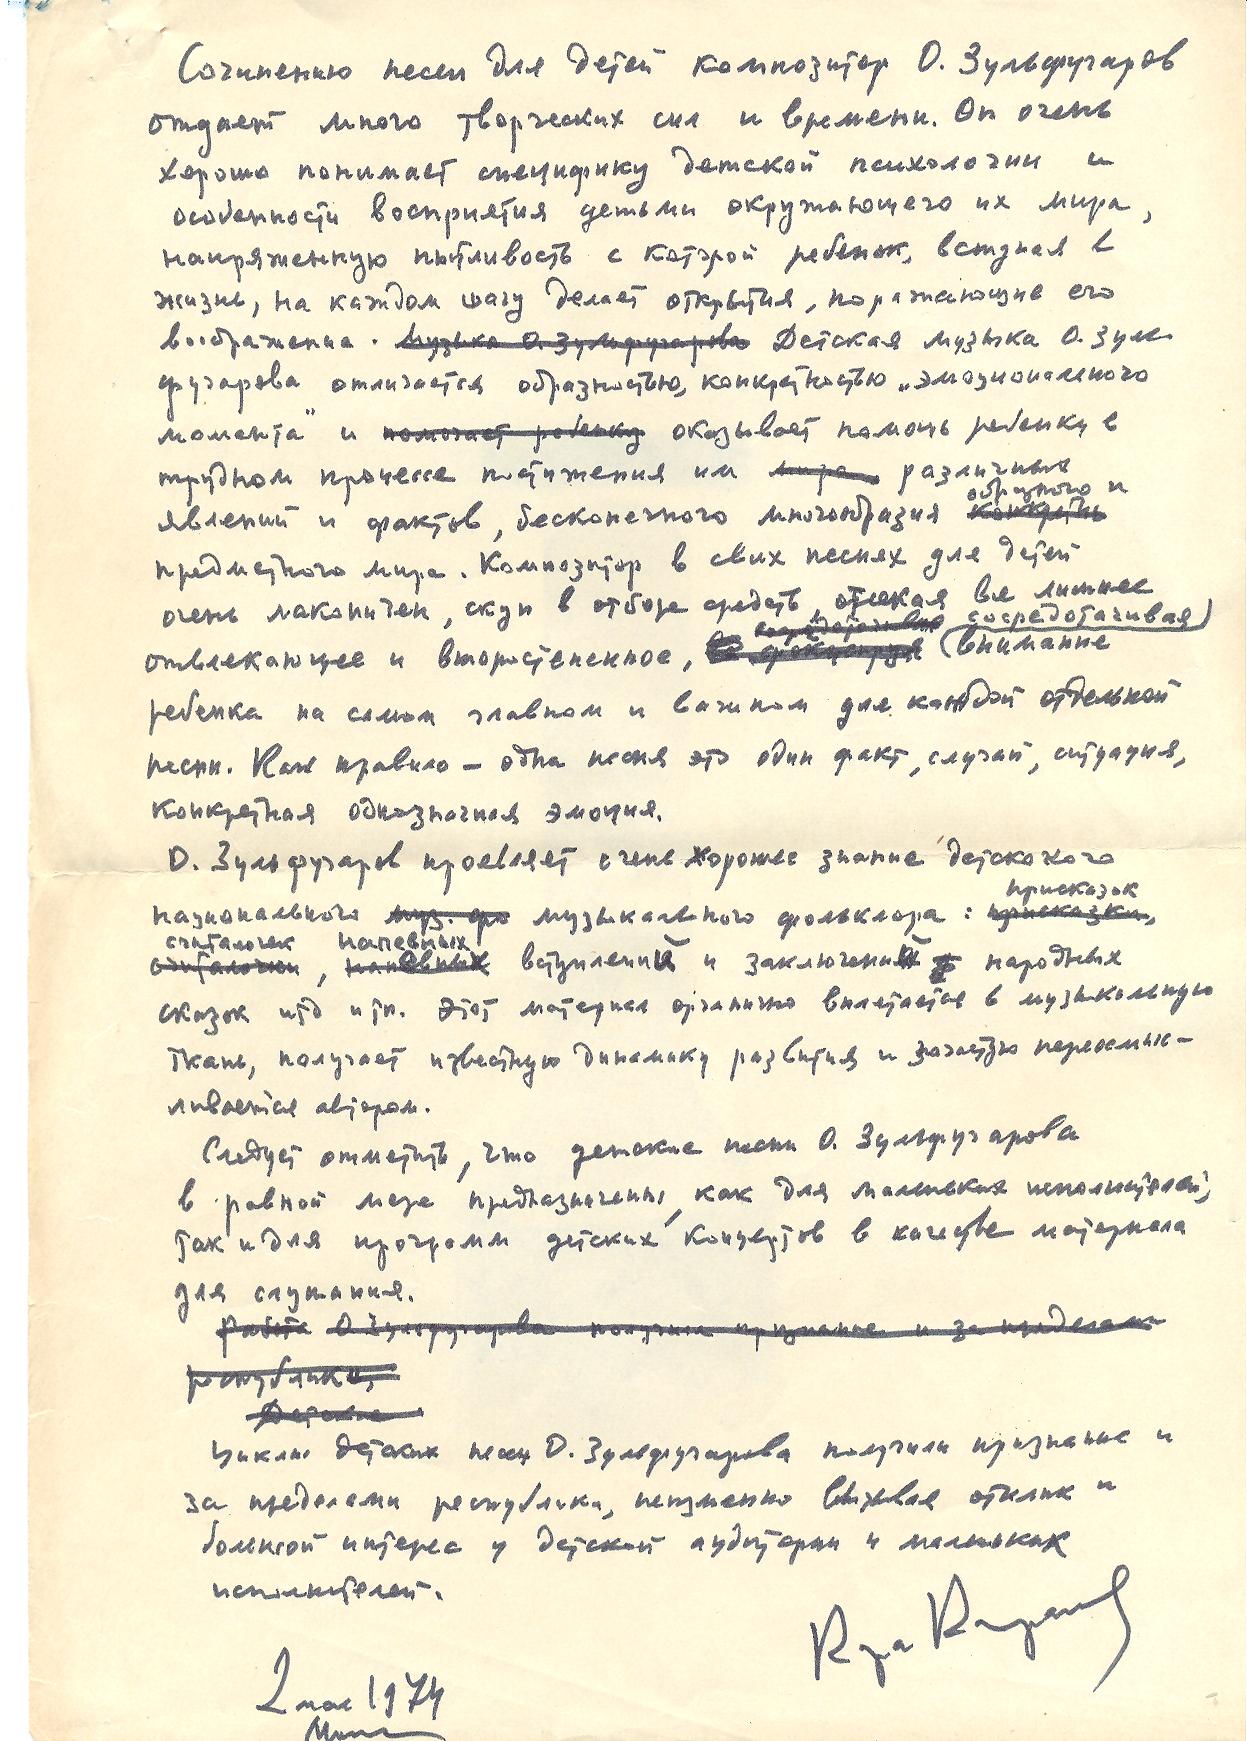 Сочинению песен для детей композитор О. Зульфугаров
отдает много творческих сил и времени. Он очень
хорошо понимает специфику детской психологии и
особенности восприятия детьми окружающего их мира,
напряженную пытливость с которой ребенок, вступая в
жизнь, на каждом шагу делает открытия, поражающие его
воображение. Музыка О. Зульфугарова Детская музыка О. Зуль-
фугарова отличается образностью, конкретностью „эмоционального
момента" и помогает ребенку оказывает помощь ребенку в
трудном процессе постижения им мира различных
образного и
явлений и фактов, бесконечного многообразия
предметного мира. Композитор в свих песнях для детей
очень лаконичен, скуп в отборе средств, отсекая все лишнее
сосредотачивая сосредотачивая
отвлекающее и второстепенное, внимание
ребенка на самом главном и важном для каждой отдельной
песни. Как правило – одна песня это один факт, случай, ситуация,
конкретная однозначная эмоция.
О. Зульфугаров проявляет очень хорошее знание детского
присказок
национального муз. фо музыкального фольклора: присказки,
считалочек напевных
считалочки, напевных вступлений и заключений народных
сказок итд итп. Этот материал органично вплетается в музыкальную
ткань, получает известную динамику развития и зачастую переосмыс-
ливается автором.
Следует отметить, что детские песни О. Зульфугарова
в равной мере предназначены, как для маленьких исполнителей,
так и для программ детских концертов в качестве материала
для слушания.
Работа О Зульфугарова получила признание и за пределами
республики,
Детские
Циклы детских песен О. Зульфугарова получили признание и
за пределами республики, неизменно вызывая отклик и
большой интерес у детской аудитории и маленьких
исполнителей.
Кара Караев
2 мая 1974